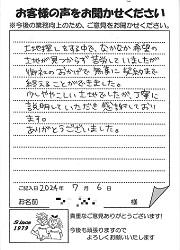 お客様の声をお聞かせください
※今後の業務向上のため、ご意見をお聞かせください。
土地探しをする中で、なかなか希望の
土地が見つからず苦労していましたが
御社のおかげで無事に契約まで
終えることができました。
少しややこしい土地でしたが、丁寧に
説明していただき感謝しており
ます。
ありがとうございました。
ご記入日 2024年 7月 6日
お名前 様
Since
1979
貴重なご意見ありがとうございます!
今後も頑張りますので
よろしくお願いいたします